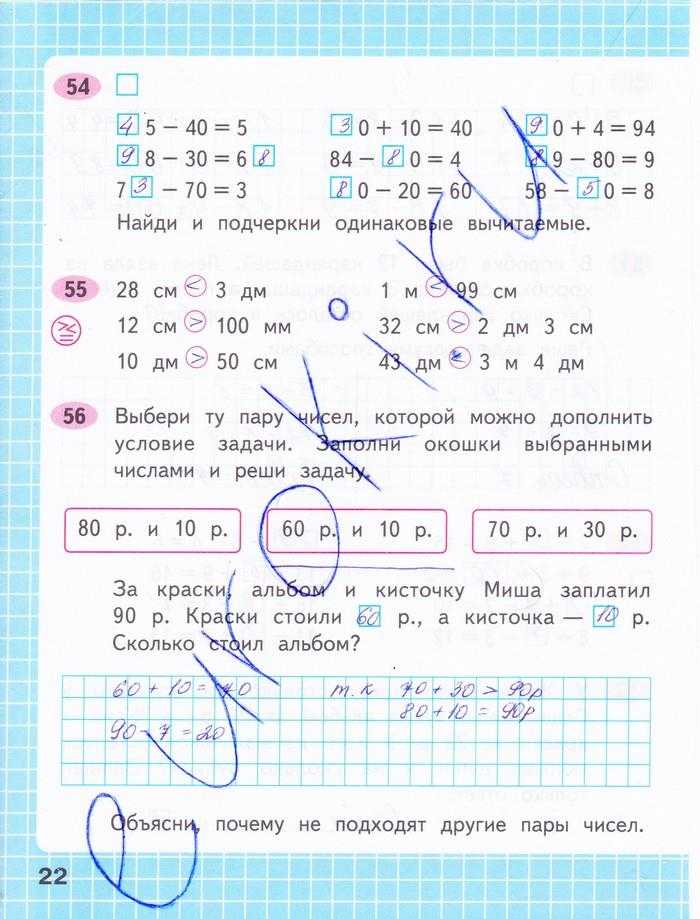 54
4 5 − 40 = 5 3 0 + 10 = 40 9 0 + 4 = 94
9 8 − 30 = 6 8 84 − 8 0 = 4 8 9 − 80 = 9
7 3 − 70 = 3 8 0 − 20 = 60 58 − 5 0 = 8
Найди и подчеркни одинаковые вычитаемые.
55 28 см < 3 дм 1 м < 99 см
12 см > 100 мм 32 см > 2 дм 3 см
10 дм > 50 см 43 дм < 3 м 4 дм
56 Выбери ту пару чисел, которой можно дополнить
условие задачи. Заполни окошки выбранными
числами и реши задачу.
80 р. и 10 р. 60 р. и 10 р. 70 р. и 30 р.
За краски, альбом и кисточку Миша заплатил
90 р. Краски стоили 60 р., а кисточка — 10 р.
Сколько стоил альбом?
60 + 10 = 70 т.к 70 + 30 > 90р
80 + 10 = 90р
90 − 7 = 20
Объясни, почему не подходят другие пары чисел.
22